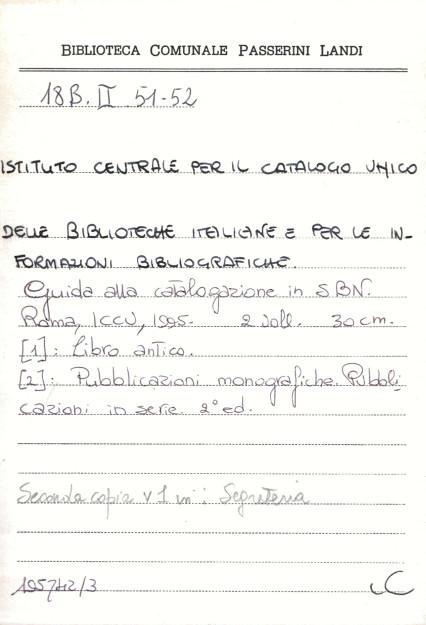 BIBLIOTECA COMUNALE PASSERINI LANDI
18B. II 51-52
ISTITUTO CENTRALE PER IL CATALOGO UNICO
DELLE BIBLIOTECHE ITALIANE E PER LE IN-
FORMAZIONI BIBLIOGRAFICHE.
Guida alla catalogazione in SBN.
Roma, ICCU, 1995. 2 voll. 30 cm.
[1]: Libro antico.
[2]: Pubblicazioni monografiche. Pubbli
cazioni in serie. 2° ed.
Seconda copia v 1 in: Segreteria
195742/3